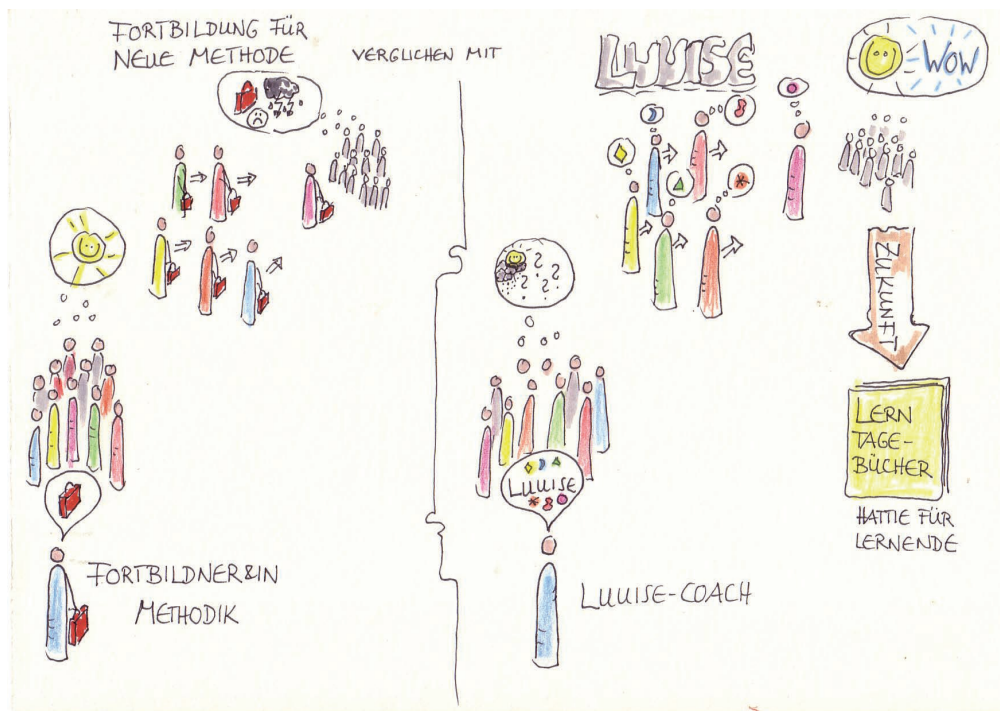 FORTBILDUNG FÜR
NEUE METHODE
VERGLICHEN MIT
LUUISE
WOW
ZUKUNFT
LERN
TAGE-
BÜCHER
HATTIE FÜR
LERNENDE
LUUISE
FORTBILDNER&IN
METHODIK
LUUISE-COACH